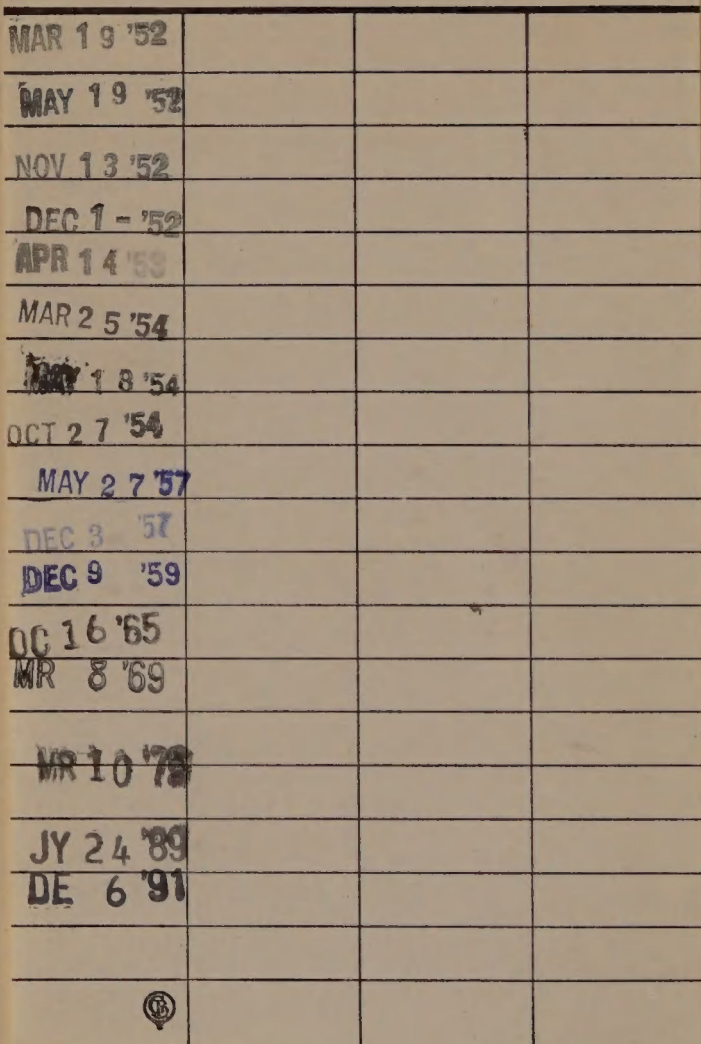 MAR 19 '52
MAY 19 '52
NOV 13 '52
DEC 1 - '52
APR 14 '53
MAR 25 '54
MAY 18 '54
OCT 27 '54
MAY 27 '57
DEC 3 '57
DEC 9 '59
OC 16 '65
MR 8 '69
MR 10
JY 24 '89
DE 6 '91